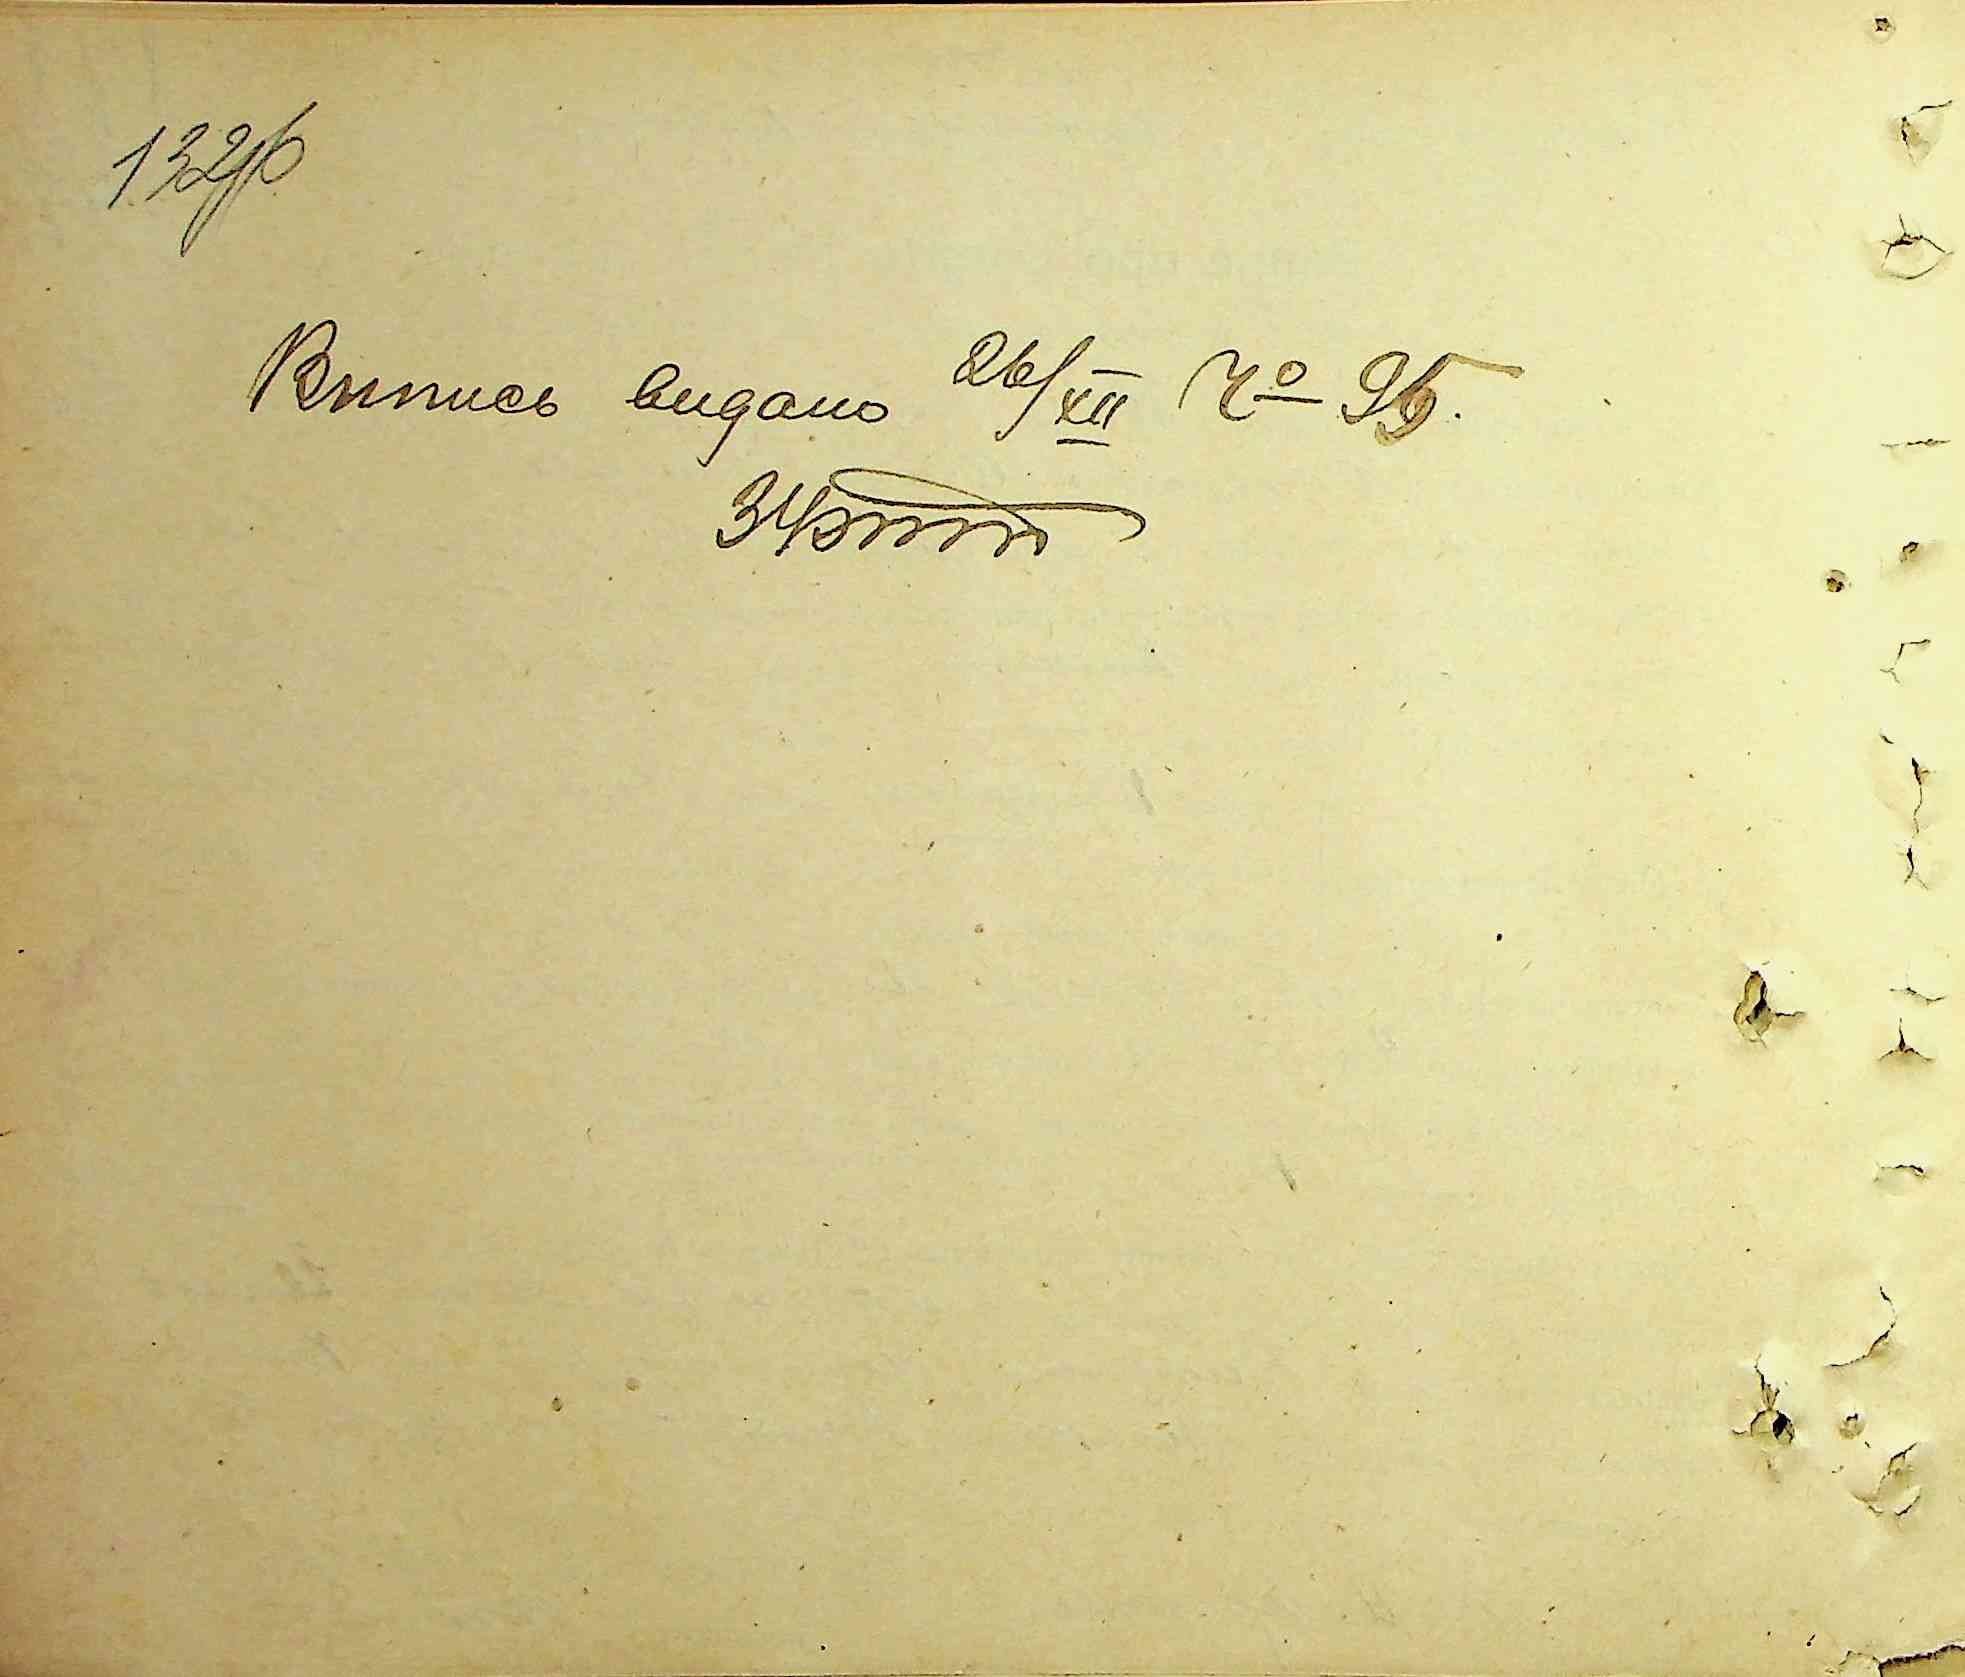 132
Випись видано 26/XII № 95.